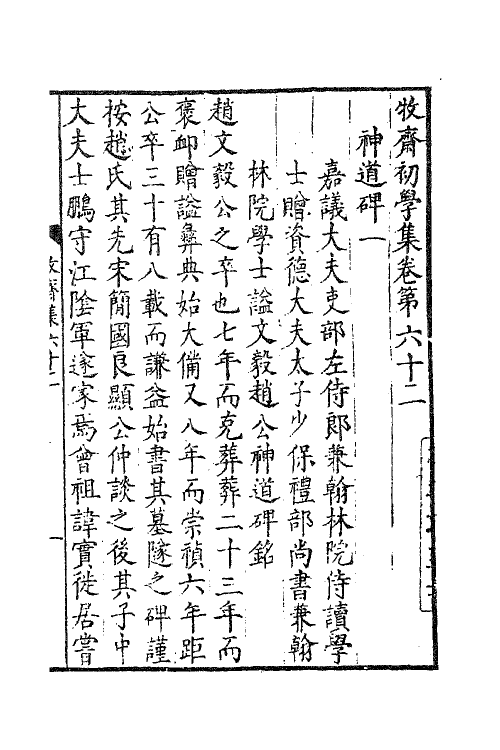 牧齋初學集卷第六十二
神道碑一
嘉議大夫吏部左侍郎兼翰林院侍讀學
士贈資德大夫太子少保禮部尚書兼翰
林院學士謚文毅趙公神道碑銘
趙文毅公之卒也七年而克葬葬二十三年而
褒卹贈謚彝典始大備又八年而崇禎六年距
公卒三十有八載而謙益始書其墓隧之碑謹
按趙氏其先宋簡國良顯公仲談之後其子中
大夫士鵬守江陰軍遂家焉曾祖諱實徙居嘗
牧齋集六十二
一